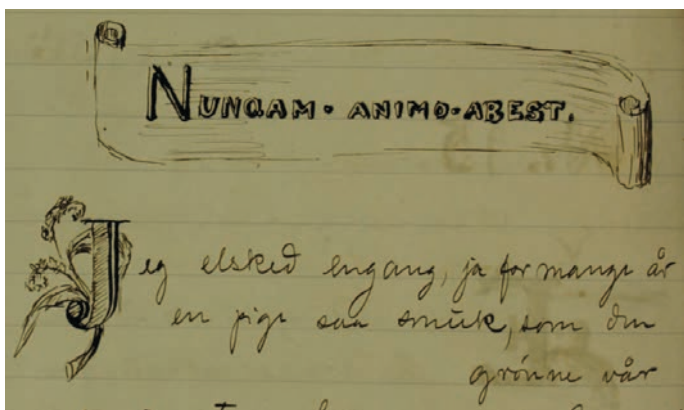 NUNQAM · ANIMO · ABEST.
Jeg elsked engang, ja for mange år
en pige saa smuk, som den
grønne vår